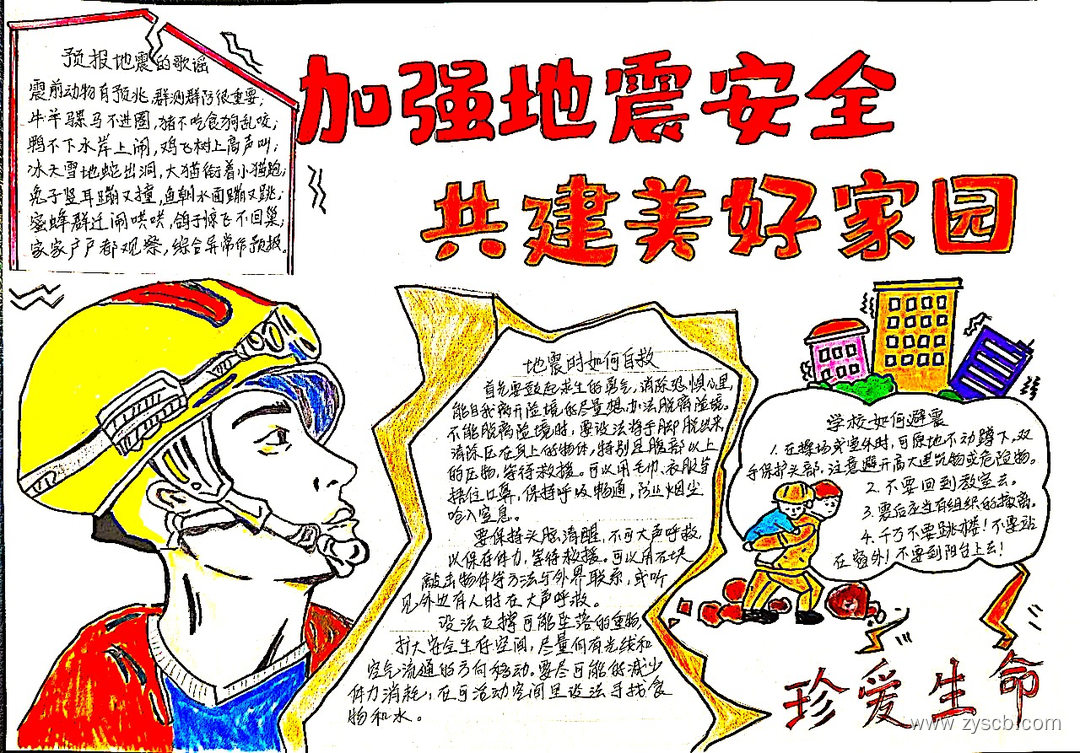 预报地震的歌谣
震前动物有预兆,群测群防很重要;
牛羊骡马不进圈,猪不吃食狗乱咬;
鸭不下水岸上闹,鸡飞树上高声叫;
冰天雪地蛇出洞,大猫衔着小猫跑;
兔子竖耳蹦又撞,鱼朝水面蹦又跳;
蜜蜂群迁闹哄哄,鸽子惊飞不回巢;
家家户户都观察,综合异常作预报。
加强地震安全
共建美好家园
地震时如何自救
首先要鼓起求生的勇气,消除恐惧心里,
能自我离开险境的尽量想办法脱离险境。
不能脱离险境时,要设法将手脚脱出来,
清除压在身上的物体,特别是腹部以上
的压物,等待救援。可以用毛巾、衣服等
捂住口鼻,保持呼吸畅通,防止烟尘
呛入窒息。
要保持头脑清醒,不可大声呼救,
以保存体力,等待救援。可以用石块
敲击物件等方法与外界联系,或听
见外边有人时在大声呼救。
设法支撑可能坠落的重物,
扩大安全生存空间,尽量向有光线和
空气流通的方向移动,要尽可能的减少
体力消耗,在可活动空间里设法寻找食
物和水。
学校如何避震
1.在操场或室外时,可原地不动蹲下,双
手保护头部,注意避开高大建筑物或危险物。
2.不要回到教室去。
3.震后应当有组织的撤离。
4.千万不要跳楼!不要站
在窗外!不要到阳台上去!
珍爱生命
www.zyscb.com